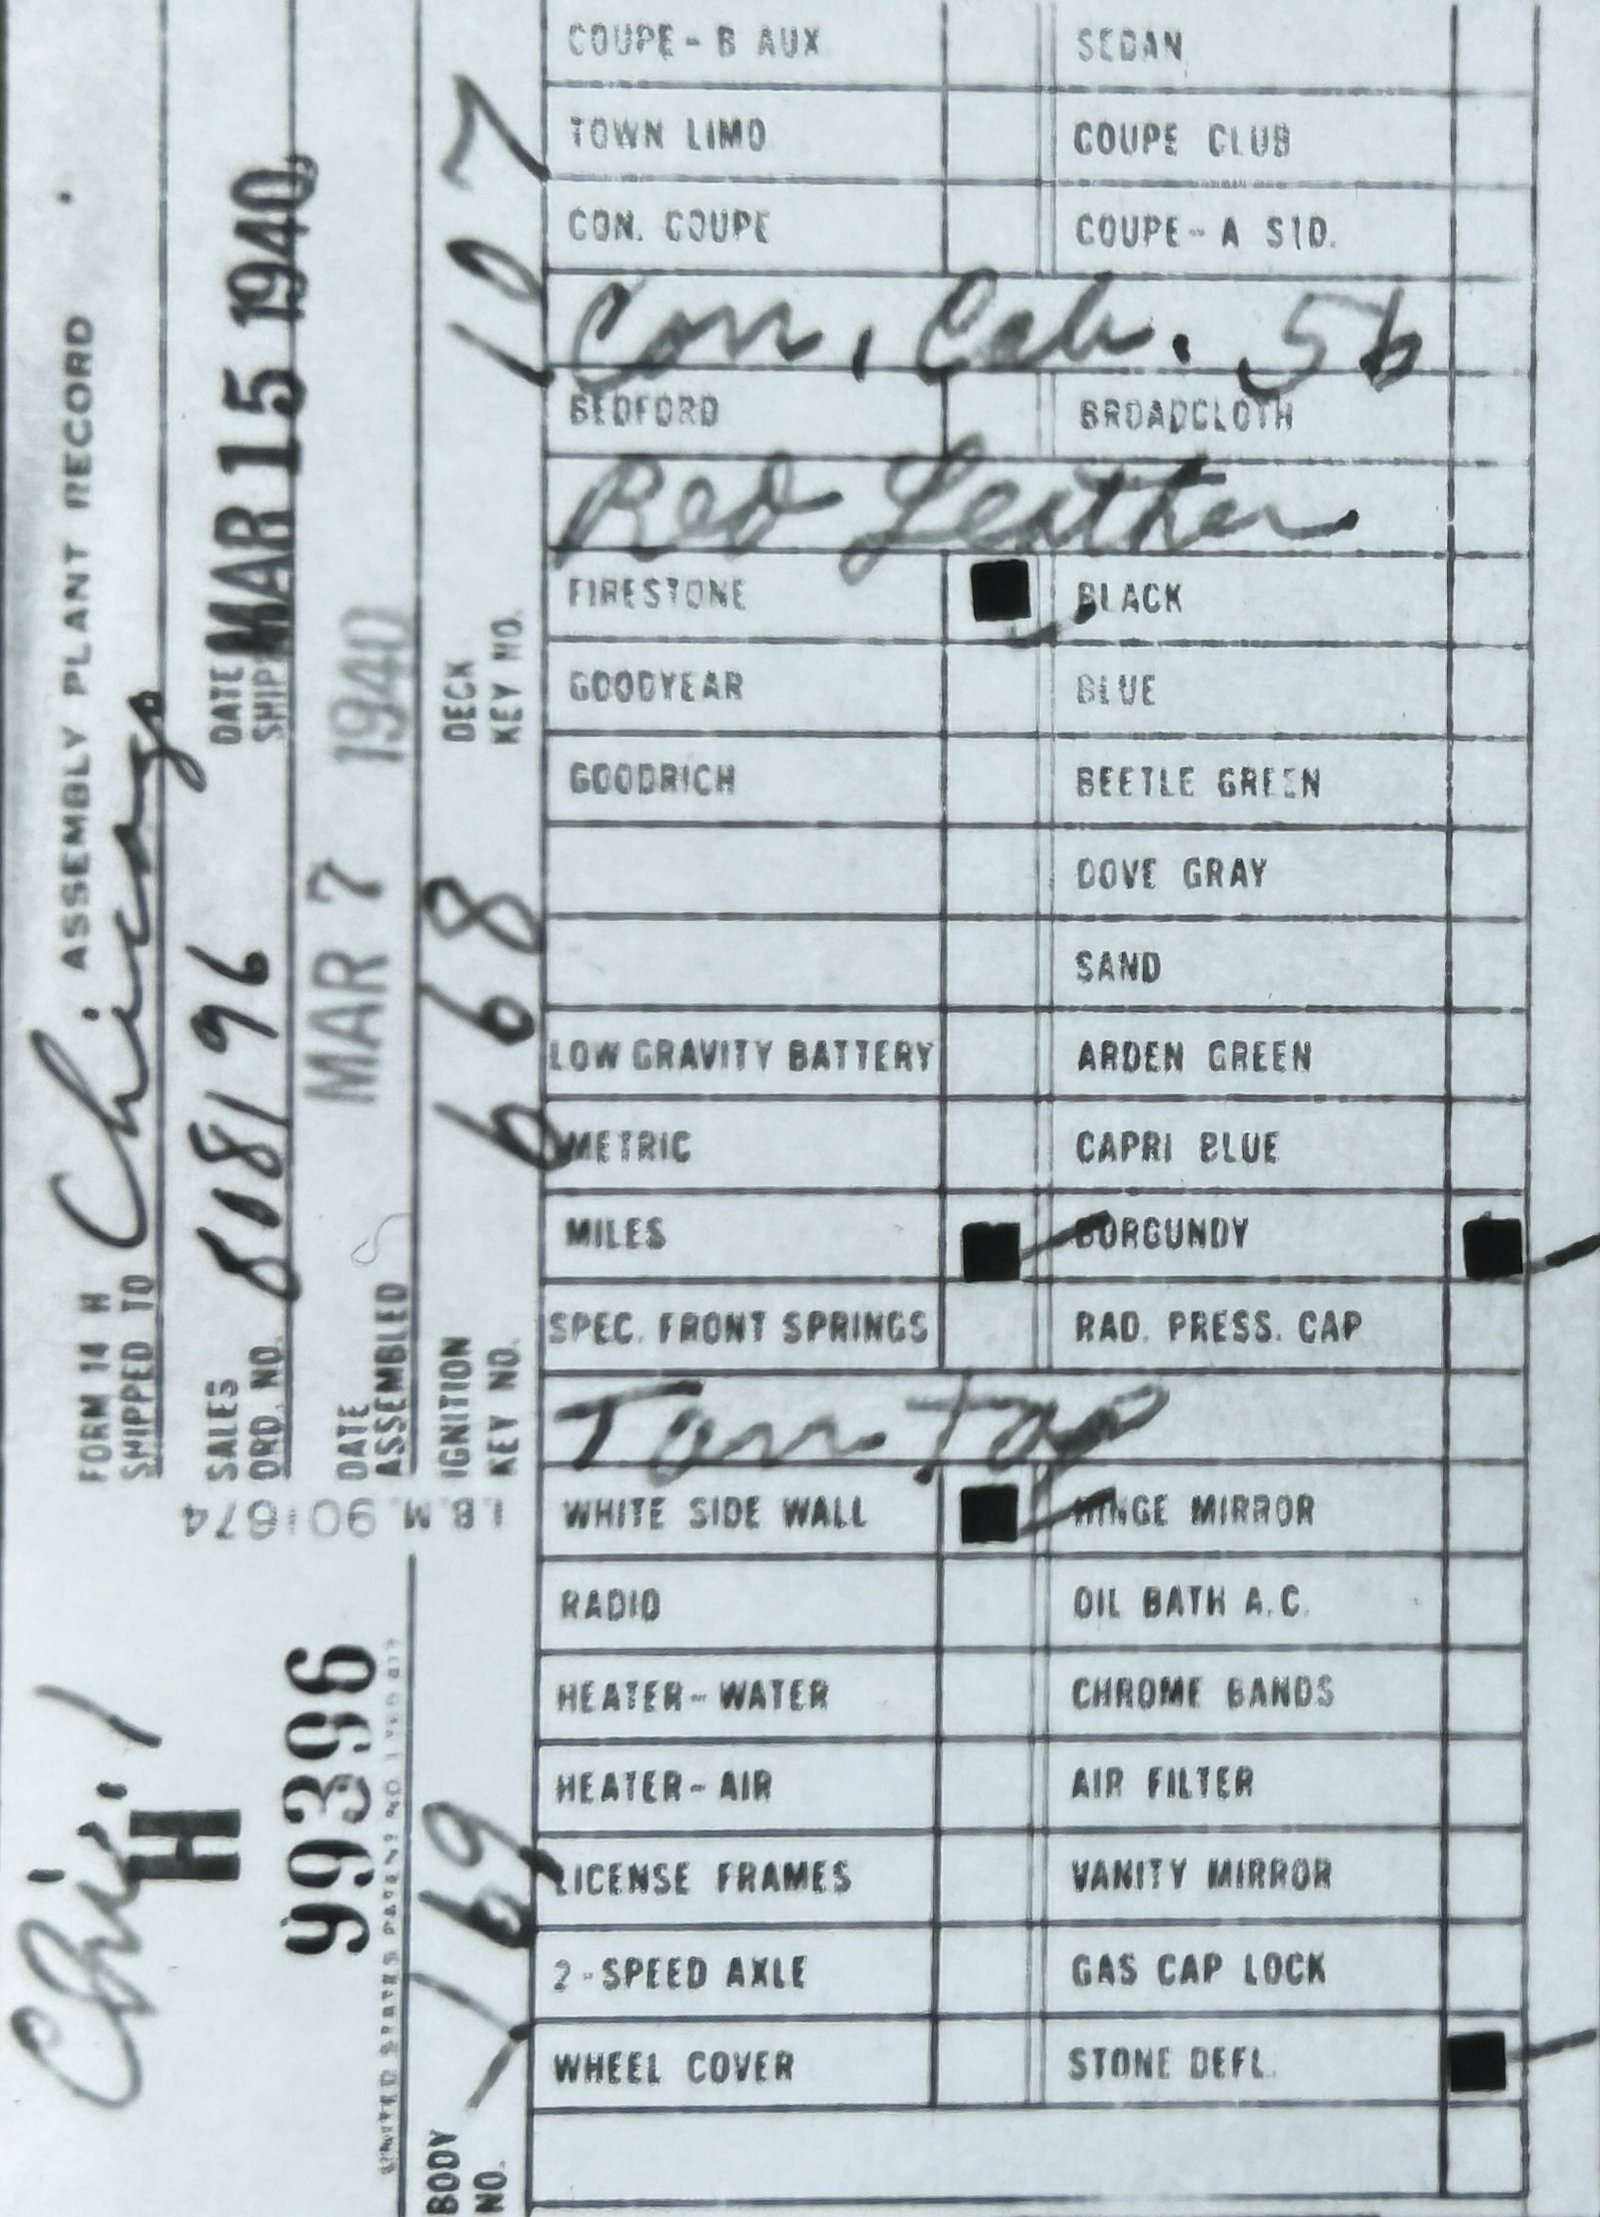 FORM 14 H ASSEMBLY PLANT RECORD
SHIPPED TO Chicago
SALES ORD. NO. 808196
DATE SHIP MAR 15 1940
DATE ASSEMBLED MAR 7 1940
IGNITION KEY NO. 668
DECK KEY NO. 107
I.B.M. 901674
Chi. 1
H
99396
BODY NO. 169
COUPE - B AUX SEDAN
TOWN LIMO COUPE CLUB
CON. COUPE COUPE - A STD.
Con. Cab. 56
BEDFORD BROADCLOTH
Red Leather
FIRESTONE BLACK
GOODYEAR BLUE
GOODRICH BEETLE GREEN
DOVE GRAY
SAND
LOW GRAVITY BATTERY ARDEN GREEN
METRIC CAPRI BLUE
MILES BURGUNDY
SPEC. FRONT SPRINGS RAD. PRESS. CAP
Tan Top
WHITE SIDE WALL HINGE MIRROR
RADIO OIL BATH A.C.
HEATER - WATER CHROME BANDS
HEATER - AIR AIR FILTER
LICENSE FRAMES VANITY MIRROR
2 - SPEED AXLE GAS CAP LOCK
WHEEL COVER STONE DEFL.